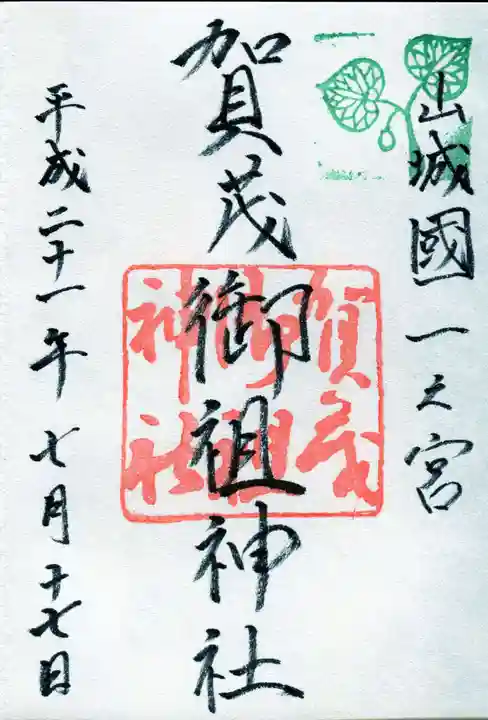 山城國一之宮
賀茂御祖神社
賀茂
御祖
神社
平成二十一年七月十七日